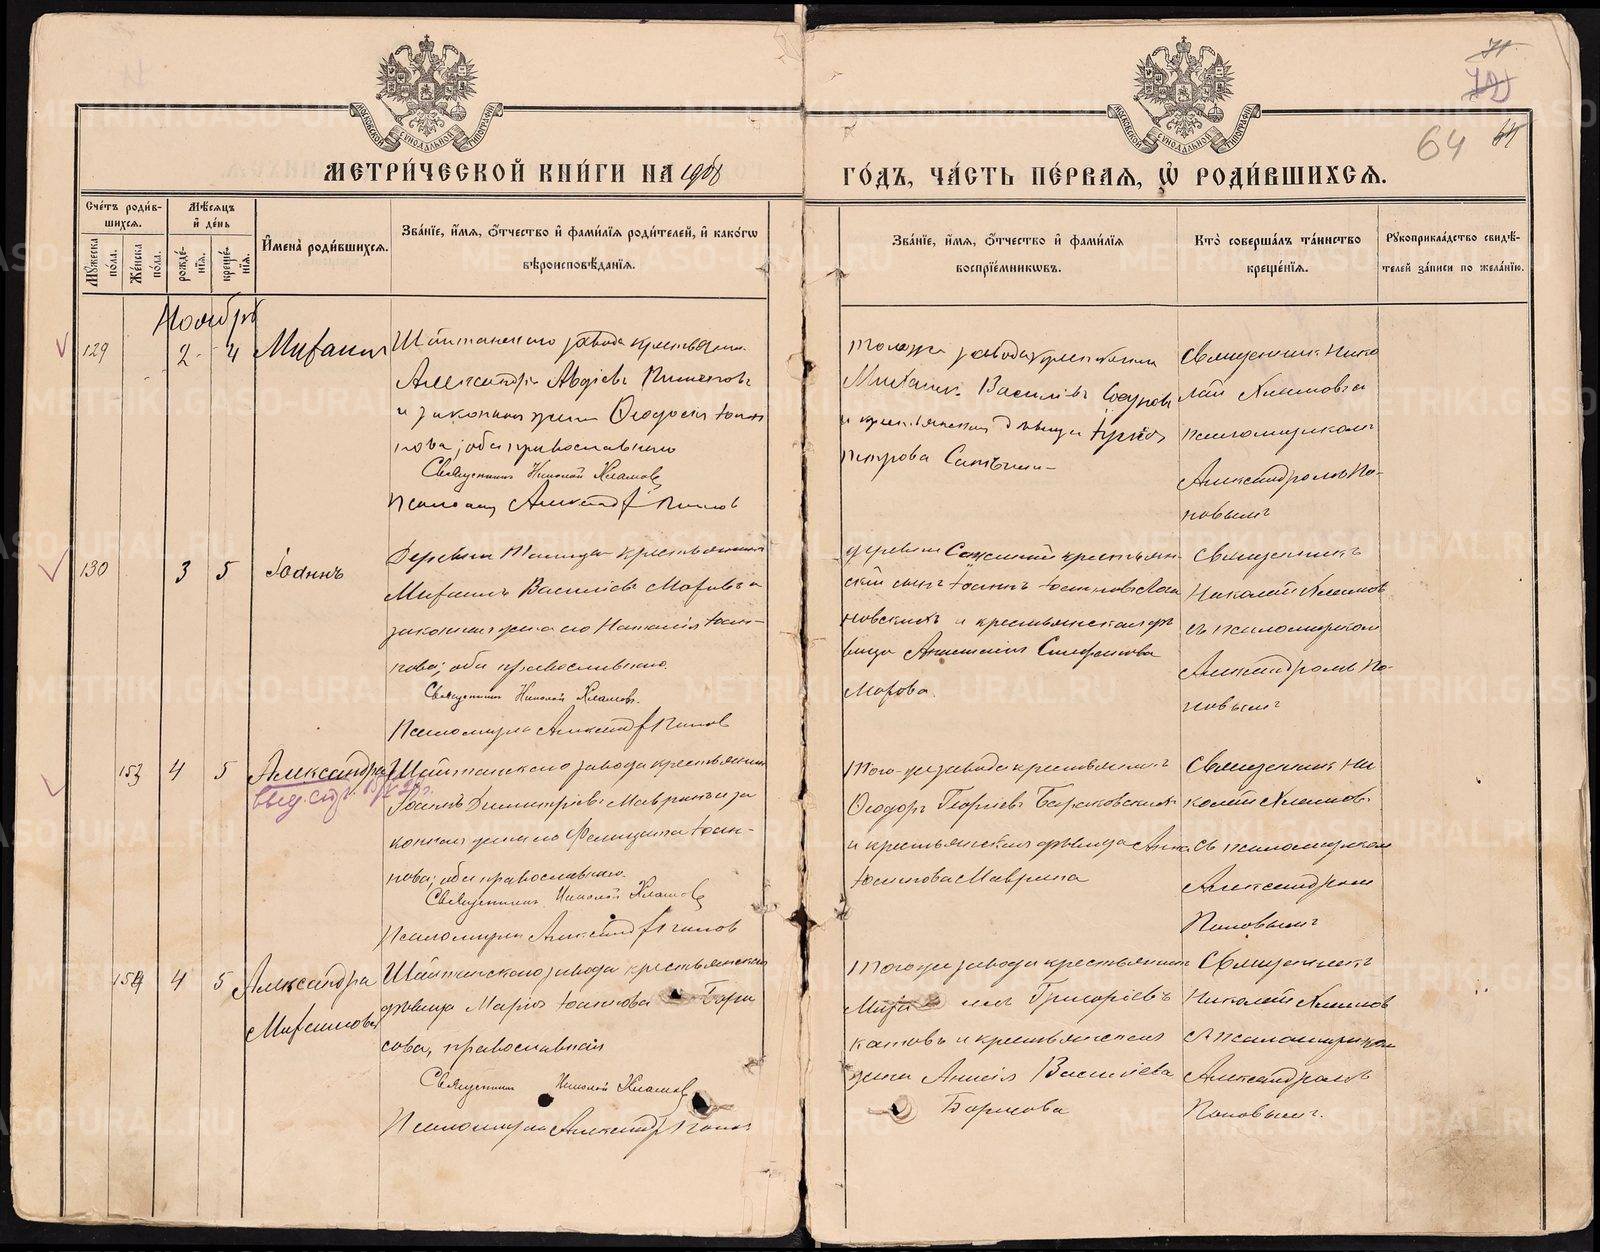 МЕТРИ́ЧЕСКОЙ КНИ́ГИ НА 1908
ГО́ДЪ, ЧА́СТЬ ПЕ́РВАѦ, Ѡ҆ РОДИ́ВШИХСѦ.
64
Сче́тъ роди́в-
шихсѧ.
Мꙋжеска
по́ла.
Же́нска
по́ла.
Мѣ́сѧцъ
и҆ де́нь
рожде́-
нїѧ.
креще́-
нїѧ.
И҆мена̀ роди́вшихсѧ.
Зва́нїе, и҆́мѧ, ѻ҆́тчество и҆ фами́лїѧ роди́телей, и҆ како́гѡ
вѣроисповѣ́данїѧ.
Зва́нїе, и҆́мѧ, ѻ҆́тчество и҆ фами́лїѧ
воспрїе́мникѡвъ.
Кто̀ соверша́лъ та́инство
креще́нїѧ.
Рꙋкоприкла́дство свидѣ́-
телей за́писи по жела́нїю.
Ноябрь
129
2 4
Михаилъ
Шайтанскаго завода крестьянинъ
Александръ Авдіевъ
и законная жена Ѳеодосія Іоан
нова; оба православнаго
Священникъ Николай Хламовъ
Александръ Поповъ
того же завода крестьянинъ
Михаилъ Васильевъ
и крестьянская дѣвица
Петрова
Священникъ Нико
лай Хламовъ и
псаломщикомъ
Александромъ По-
повымъ
130
3 5
Іоаннъ
Деревни Талицы крестьянинъ
Михаилъ Васильевъ Моровъ и
законная жена его Наталія Іоан-
нова; оба православнаго.
Священникъ Николай Хламовъ.
Псаломщикъ Александръ Поповъ
деревни крестьян-
скій сынъ Іоаннъ Іоанновъ
и крестьянская дѣ
вица
Морова.
Священникъ
Николай Хламовъ
съ псаломщикомъ
Александромъ По-
повымъ
153
4 5
Александра
Шайтанскаго завода крестьянинъ
Іоаннъ Димитріевъ Мавринъ и за
конная жена его Фелицата Іоан-
нова; оба православнаго
Священникъ Николай Хламовъ
Псаломщикъ Александръ Поповъ
Того-же завода крестьянинъ
Ѳеодоръ Георгіевъ
и крестьянская дѣвица Анна
Іоаннова Маврина
Священникъ Ни
колай Хламовъ
съ псаломщикомъ
Александромъ
Поповымъ
154
4 5
Александра
Михаилова
Шайтанскаго завода крестьянская
дѣвица Марія Іоаннова Бори
сова, православная
Священникъ Николай Хламовъ
Псаломщикъ Александръ Поповъ
Того же завода крестьянинъ
Григоріевъ
и крестьянская
жена Анисія Васильева
Борисова
Священникъ
Николай Хламовъ
съ псаломщикомъ
Александромъ
Поповымъ.
METRIKI.GASO-URAL.RU